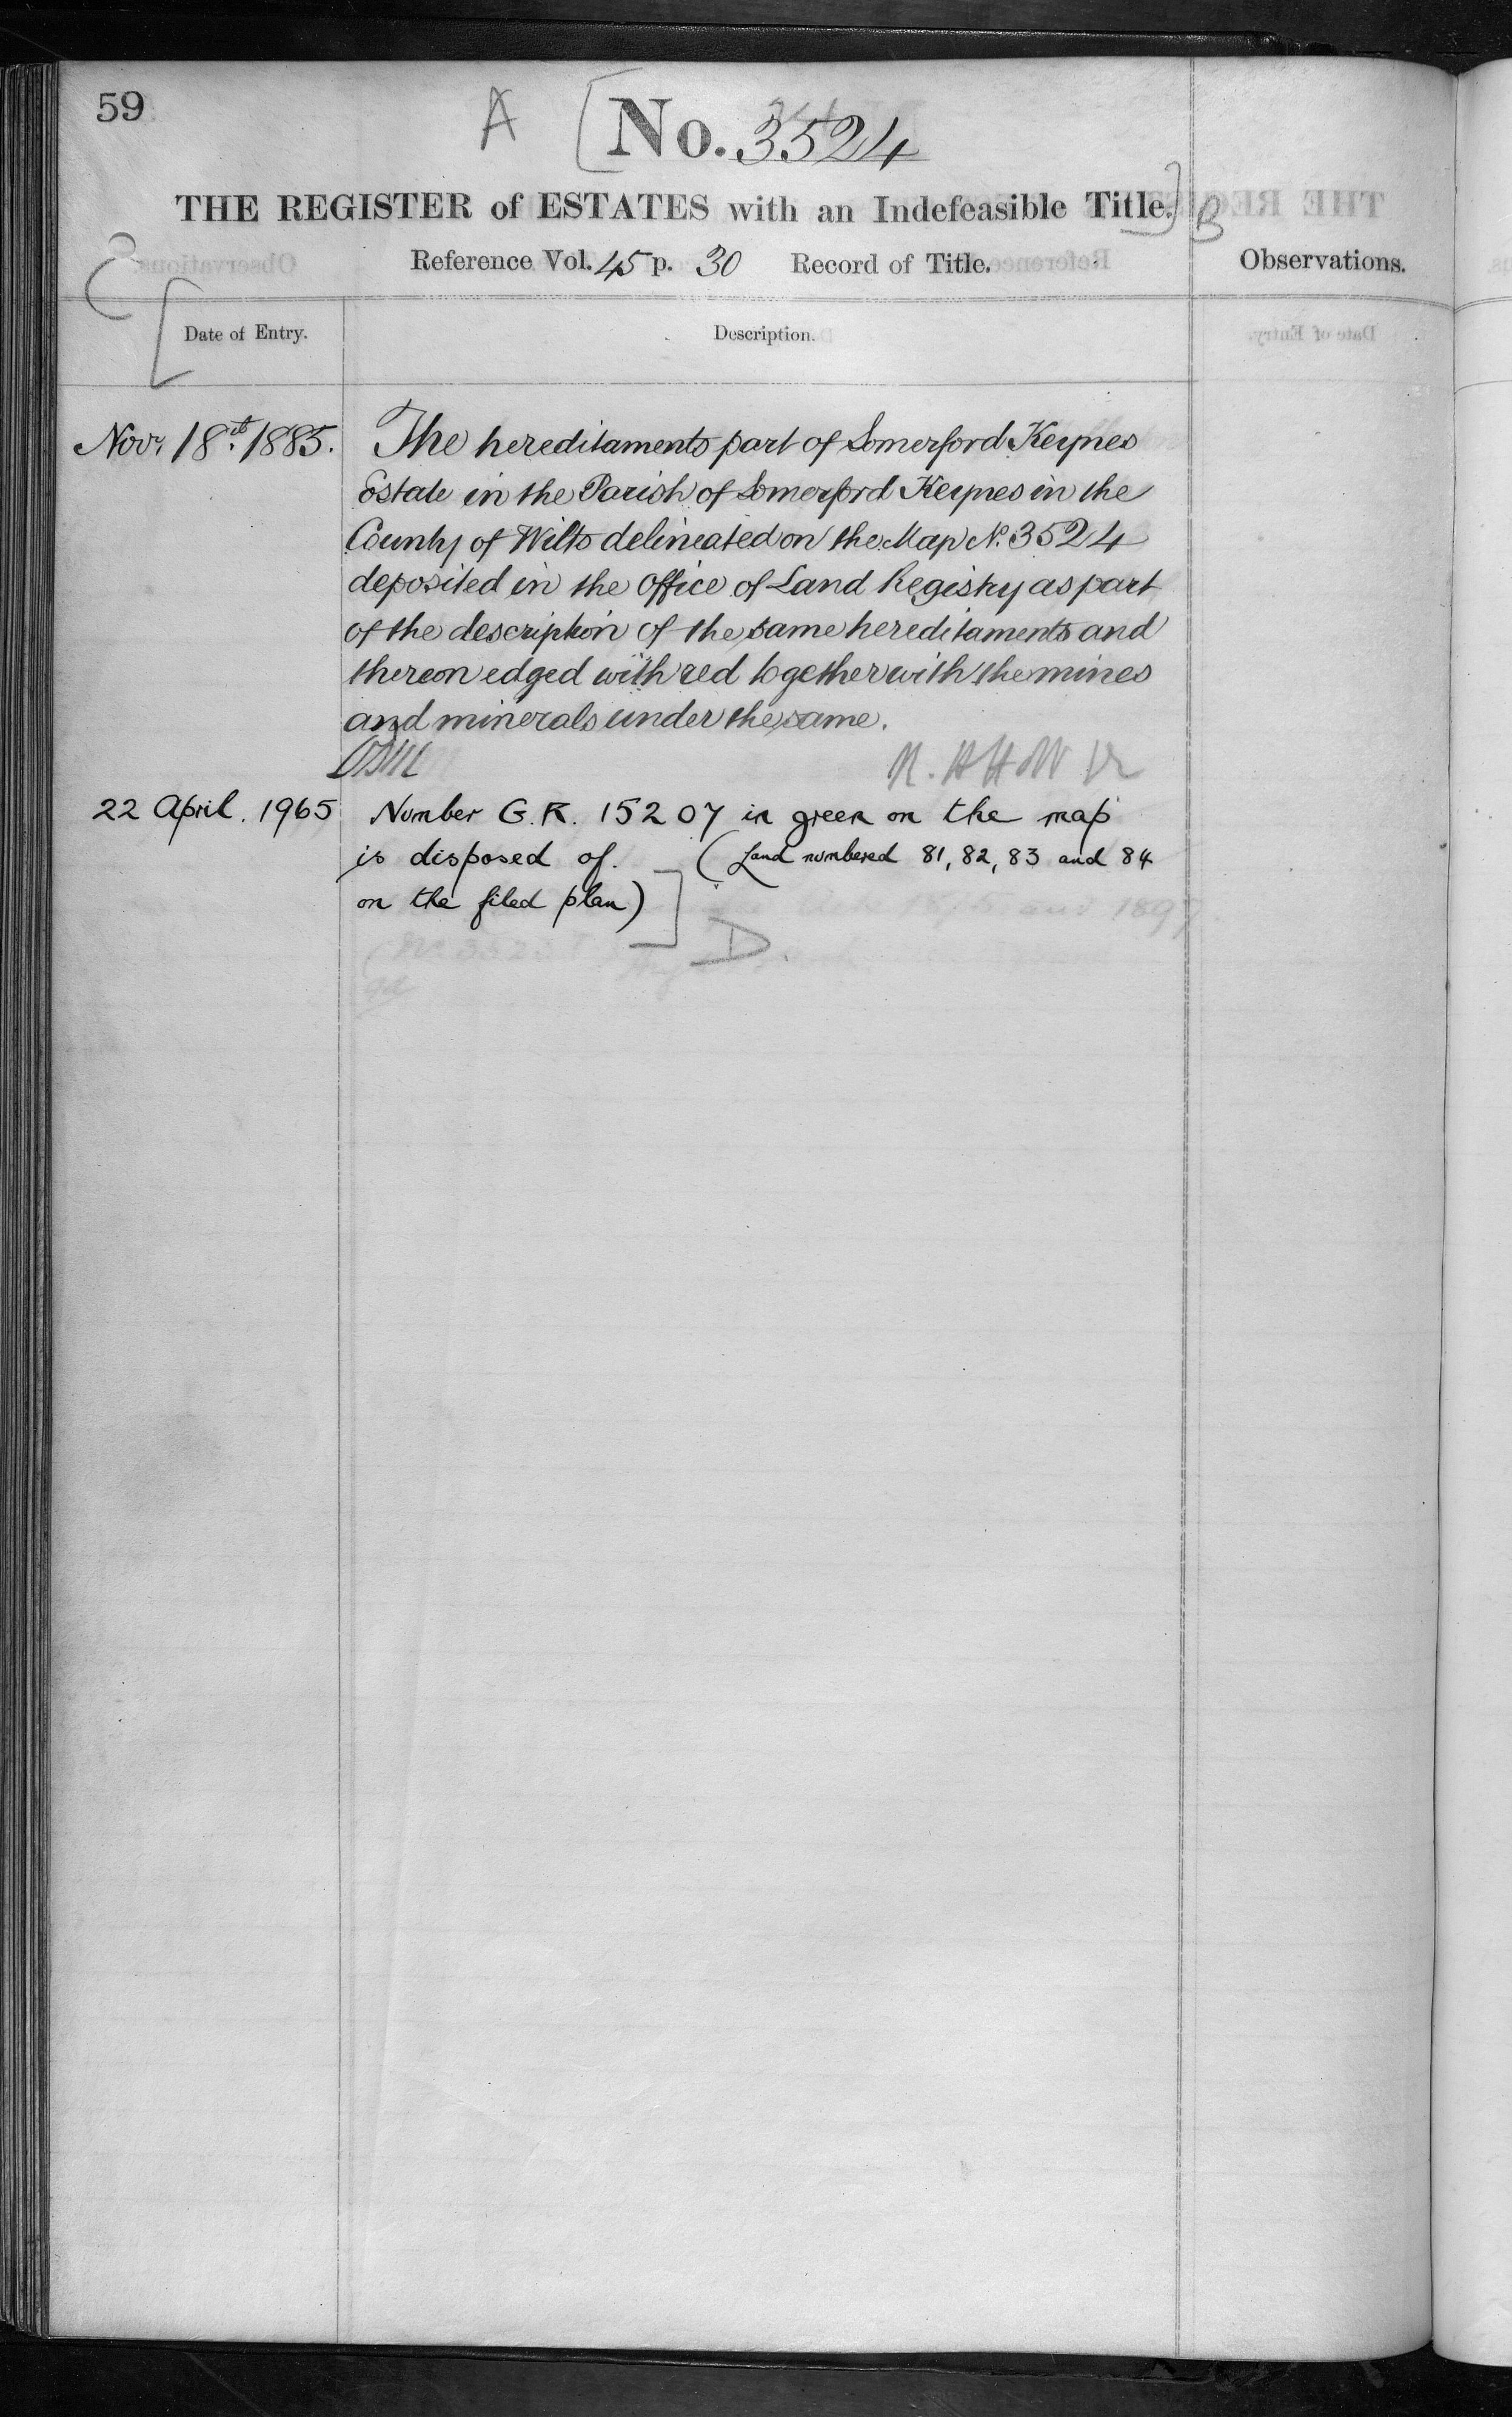 59
A [ No. 3524
THE REGISTER of ESTATES with an Indefeasible Title. ] B
Reference Vol. 45 p. 30 Record of Title.
Observations.
C [
Date of Entry.
Description.
Novr. 18th. 1885.
The hereditaments part of Somerford Keynes
Estate in the Parish of Somerford Keynes in the
County of Wilts delineated on the Map No. 3524
deposited in the Office of Land Registry as part
of the description of the same hereditaments and
thereon edged with red together with the mines
and minerals under the same.
22 April. 1965
Number G.R. 15207 in green on the map
is disposed of. (Land numbered 81, 82, 83 and 84
on the filed plan) ]
D.
1897